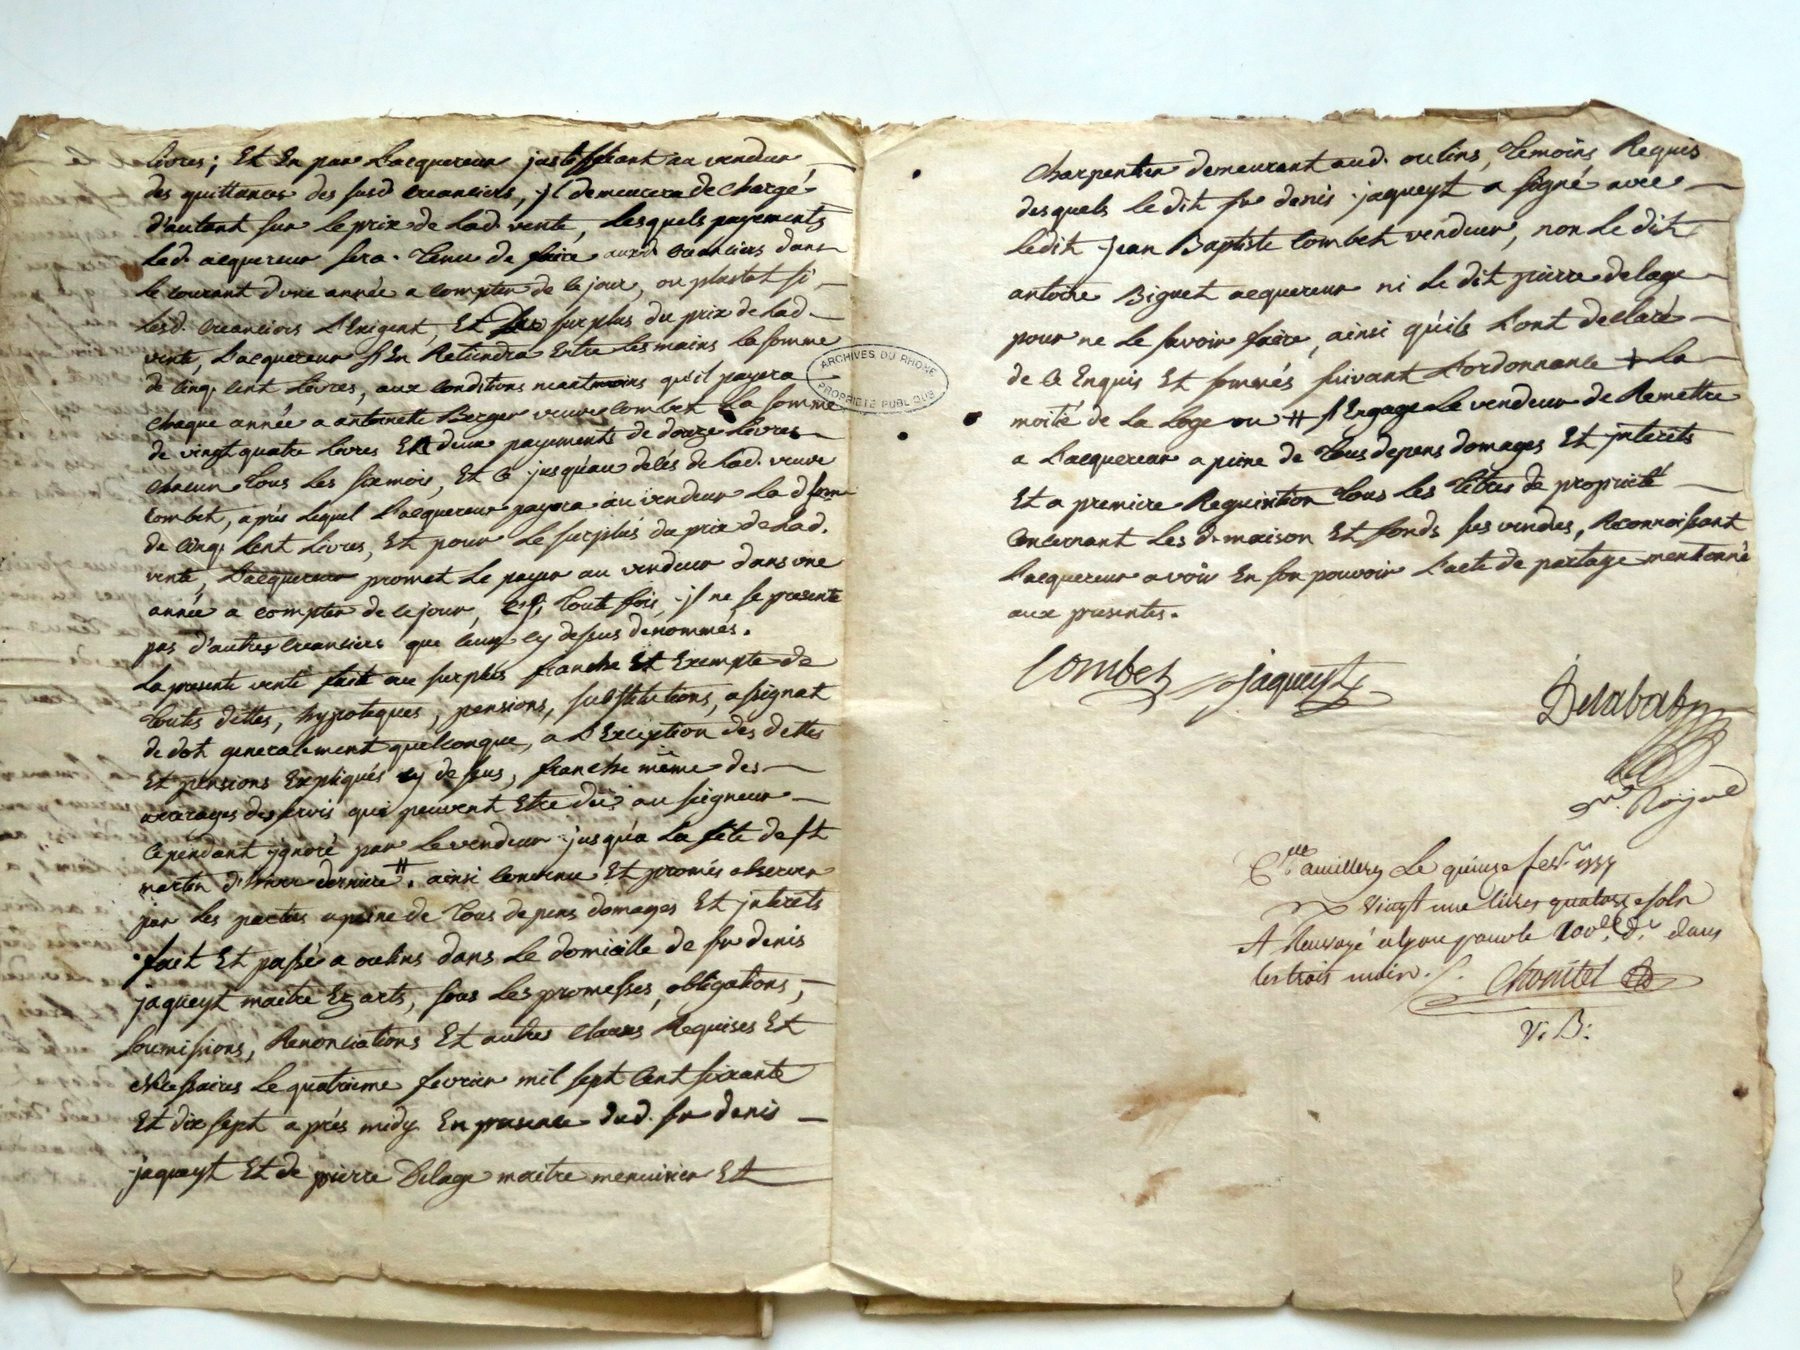 livres; Et En par L'acquereur justiffiant au vendeur
des quittances des susd creanciers, jl demeurera dechargé
d'autant sur le prix de Lad. vente, Lesquels payements
Led. acquereur sera tenu de faire auxd. creanciers dans
Le courant d'une année a compter de ce jour, ou plustot si
Lesd. creanciers L'Exigent, Et Le surplus du prix de Lad
vente, L'acquereur En Retiendra Entre Les mains La somme
de Cinq Cent Livres, aux Conditions neantmoins qu'il payera
chaque année a antoinette Berger veuve Combet La somme
de vingt quatre Livres En deux payements de douze Livres
chacun tous Les six mois, Et Ce jusqu'au déces de Lad. veuve
Combet, aprés Lequel L'acquereur payera au vendeur La d. somme
de Cinq Cent Livres, Et pour Le surplus du prix de Lad.
vente, L'acquereur promet Le payer au vendeur dans une
année a compter de ce jour, si toute fois jl ne se presente
pas d'autres creanciers que ceux cy dessus denommés.
La presente vente faite au surplus franche Et Exempte de
toutes dettes, hypoteques, pensions, substitutions, assignat
de dot generalement quelconque, a L'Exception des dettes
Et pensions Expliqués cy dessus, franche même des
arrerages de servis qui peuvent Etre dûs au seigneur
Cependant ignoré par Le vendeur jusqu'a La fête de st
martin d'hiver derniere #. ainsi Convenu Et promis observer
par Les parties a peine de tous depens domages Et jnterets
fait Et passé a oulins dans Le domicille de sr denis
jaqueyt maitre Ez arts, sous Les promesses, obligations,
soumissions, Renonciations Et autres Clauses Requises Et
necessaires Le quatrieme fevrier mil sept Cent soixante
Et dix sept aprés midy En presence dud. sr denis
jaqueyt Et de pierre Delage maitre menuisier Et
charpentier demeurant aud. oulins, temoins Requis
desquels Le dit sr denis jaqueyt a signé avec
Ledit jean Baptiste Combet vendeur, non Le dit
antoine Biguet acquereur ni Le dit pierre delage
pour ne Le savoir faire, ainsi qu'ils L'ont declaré
de Ce Enquis Et sommés suivant L'ordonnance + La
moitié de La Loge ou # s'Engage Le vendeur de Remettre
a L'acquereur a peine de tous depens domages Et jnterets
Et a premiere Requisition tous Les titres de proprieté
Concernant Les d. maison Et fonds sus vendus, Reconnoissant
L'acquereur avoir En son pouvoir L'acte de partage mentionné
aux presentes.
Combet jaqueyt
Delabal
Royal
ARCHIVES DU RHONE
PROPRIETE PUBLIQUE
Le quinze fev.r 1777
vingt une livres quatorze sols
dans
les trois mois.
V. B: